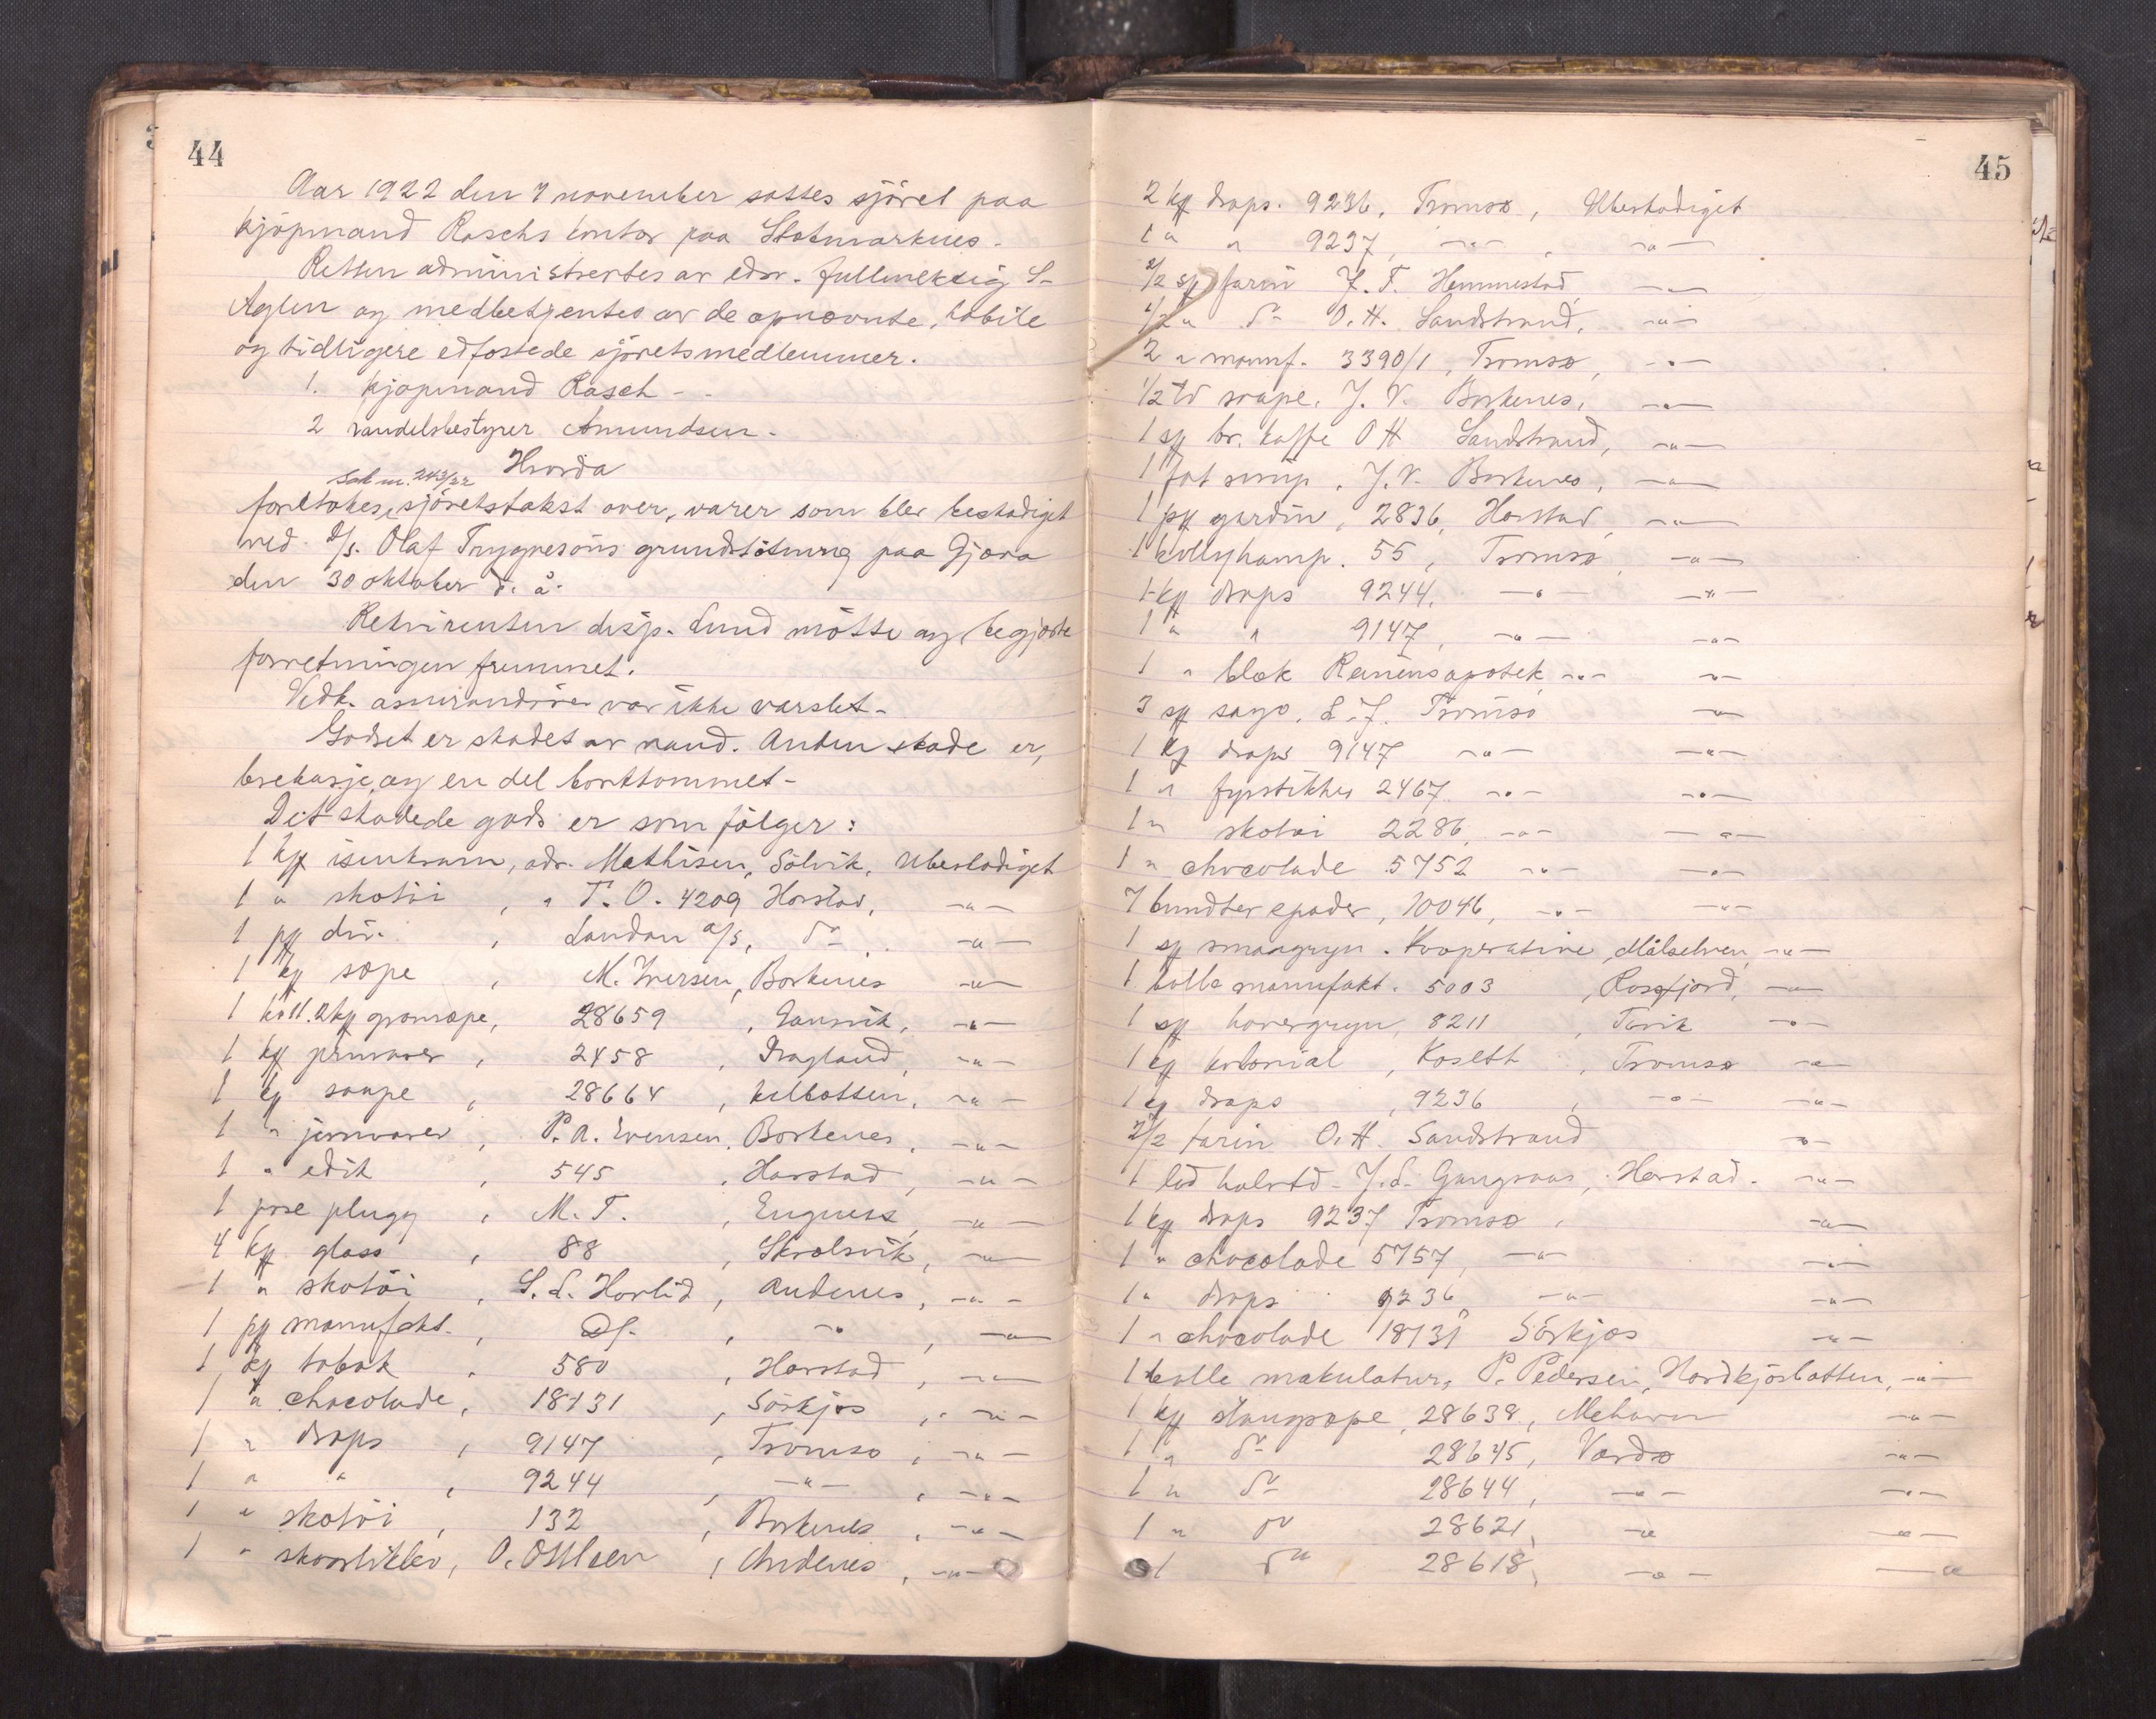 44
Aar 1922 den 7 november sattes sjöret paa
kjöpmand Raschs kontor paa Stokmarknes.
Retten administrertes av edsv. fuldmektig S.
Aglen og medbetjentes av de opnævnte, habile
og tidligere edfæstede sjöretsmedlemmer.
1. kjøpmand Rasch -
2 handelsbestyrer Amundsen.
Hvorda
Sak nr. 243/22
foretokes sjöretstakst over varer som blev beskadiget
ved D/s. Olaf Trygvesöns grundstötning paa Gjæva
den 30 oktober d. å.
Rekvirenten disp. Lund mötte og begjærte
forretningen fremmet.
Vedk. assurandörer var ikke varslet.
Godset er skadet av vand. Anden skade er,
brekasje, og en del bortkommet.
Det skadede gods er som fölger:
1 kg isenkram, adr. Mathisen, Sölvik, Ubeskadiget
1 " skotöi , " T. O. 4209 Harstad, -"-
1 pg div. , Landau a/s, do -"-
1 kg sæpe , M. Iversen, Borkenes -"-
1 koll. 2 kg grønsæpe, 28659 , -"-
1 kg jernvarer , 2458 , Dragland, -"-
1 kg saape , 28664 , Kilbotten, -"-
1 " jernvarer , P. A. Evensen, Borkenes, -"-
1 " edik , 545 , Harstad, -"-
1 pose plugg , M. T. , Engenes, -"-
4 kg glass , 88 , Skrolsvik, -"-
1 " skotöi , S. L. Havlid , Andenes, -"-
1 pg manufakt. , , -"- , -"-
1 kg tobak , 580 , Harstad , -"-
1 " chocolade , 18131 , Sörkjos , -"-
1 " drops , 9147 , Tromsø , -"-
1 " " , 9244 , -"- , -"-
1 " skotöi , 132 , Borkenes , -"-
1 " , O. , Andenes , -"-
45
2 kg drops. 9236, Tromsø, Ubeskadiget
1 " " 9237, -"- , -"-
2/2 sk farin J. F. Hemmestad, -"-
2/2 " do O. H. Sandstrand, -"-
2 " manuf. 3390/1, Tromsø, -"-
1/2 td saape, J. V. Borkenes, -"-
1 sk br. kaffe O H Sandstrand, -"-
1 fat sirup, J. V. Borkenes, -"-
1 pg gardin, 2836, Harstad, -"-
1 kolly hamp. 55, Tromsø, -"-
1 kg drops 9244, -"- -"-
1 " " 9147, -"- -"-
1 " blæk apotek -"- -"-
3 sk sago, L. J. Tromsø -"-
1 kg drops 9147 -"- -"-
1 " fyrstikker 2467 -"- -"-
1 " skotöi 2286, -"- -"-
1 " chocolade 5752 -"- -"-
7 bundter spader, 10046, -"- -"-
1 sk smaagryn. Kooperative, Målselven, -"-
1 balle manufakt. 5003 , Rossfjord, -"-
1 sk havregryn, 8211 , -"-
1 kg kolonial , Koseth , Tromsø -"-
1 kg drops , 9236 , -"- -"-
2/2 farin O. H. Sandstrand -"-
1 , Harstad. -"-
1 kg drops 9237 Tromsø , -"-
1 " chocolade 5757, -"- -"-
1 " drops 9236 -"- -"-
1 " chocolade 18131 Sörkjos -"-
1 balle makulatur, P. Pedersen, Nordkjosbotten, -"-
1 kg stangsæpe, 28638, Mehavn -"-
1 " do 28645, Vardø -"-
1 " do 28644, -"- -"-
1 " do 28621, -"- -"-
1 do 28618, -"- -"-